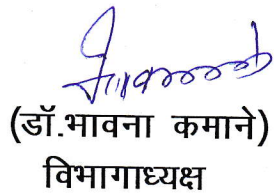 (डॉ.भावना कमाने)
विभागाध्यक्ष